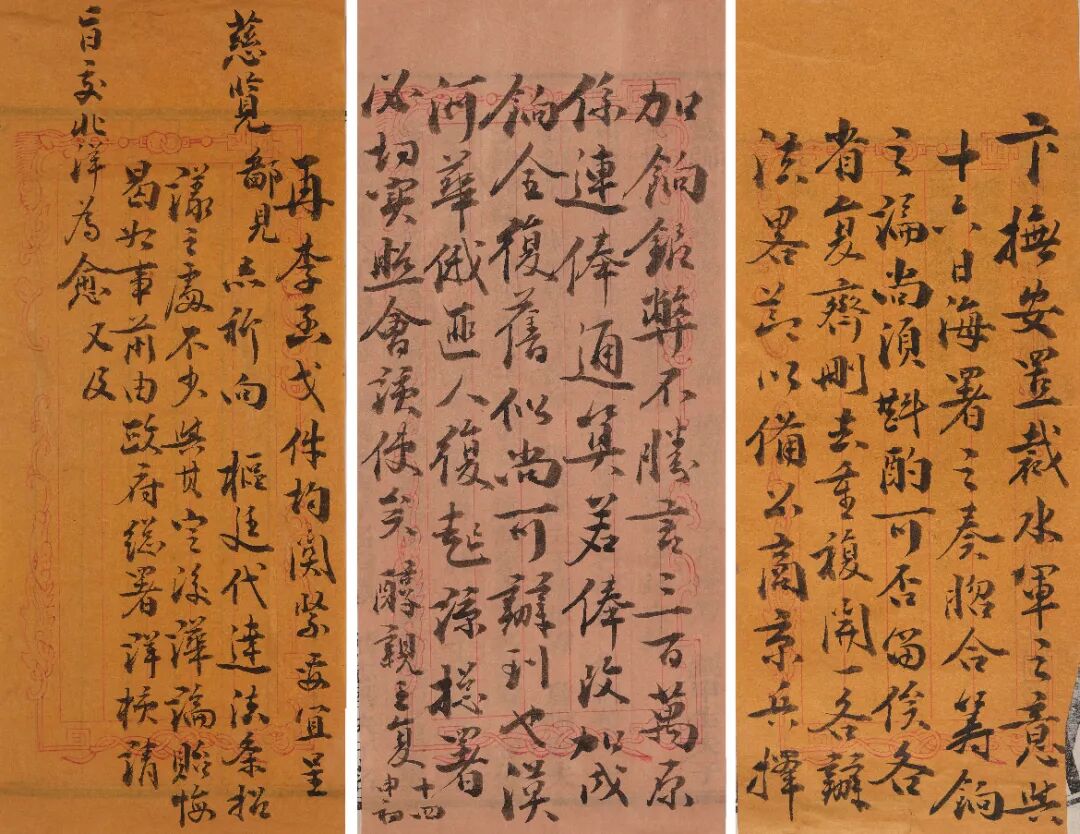 卞撫安置裁水軍之意與
十六日海署之奏脗合籌餉
之論尚須斟酌可否留俟各
省复齊刪去重複開一各辦
法畧節以備公商京兵擇
加餉錮弊不勝言三百萬原
係連俸通算若俸改加成
餉全復舊似尚可辦到也漠
河華俄匪人復起諒總署
必切實照會該使矣醇親王复
十四
申初
再李函戈件均關緊要宜呈
慈覽鄙見亦祈向樞廷代達法条招
漾之處不少與其定後譁論貽悔
曷如事前由政府總署詳核請
旨交北洋為愈又及